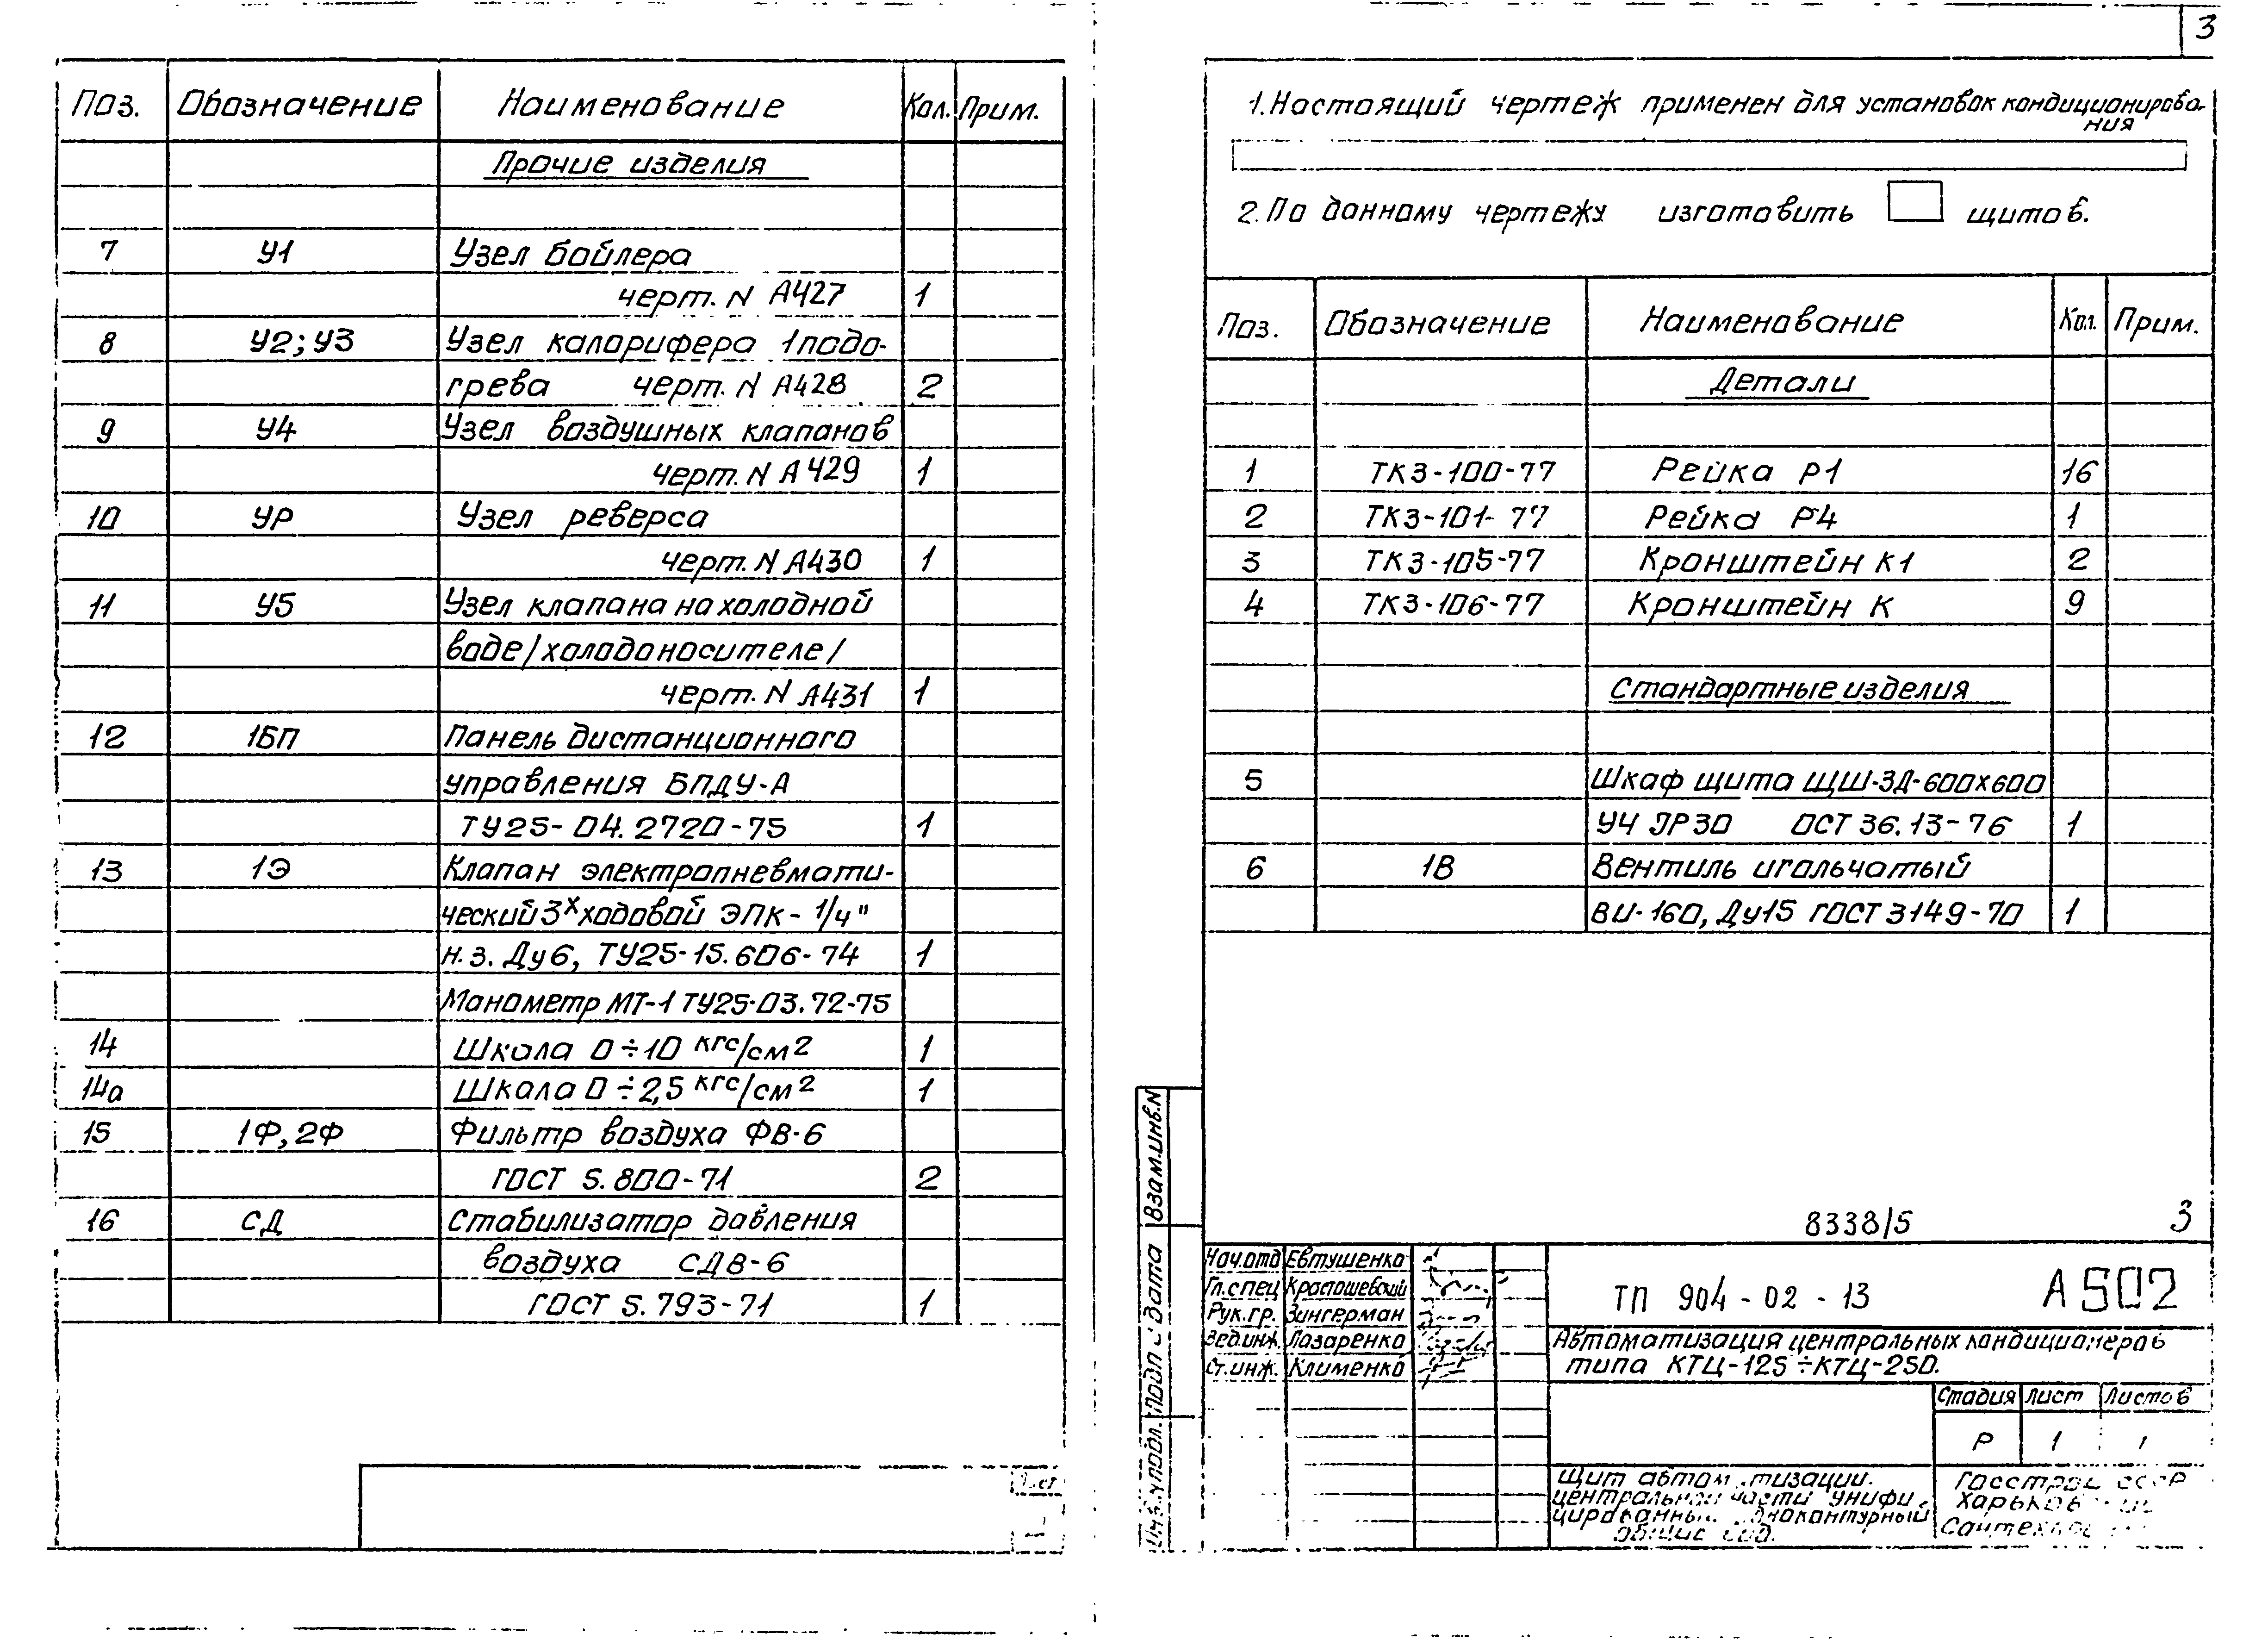 Поз. Обозначение Наименование Кол. Прим.
Прочие изделия
7 У1 Узел бойлера
черт. N А427 1
8 У2; У3 Узел калорифера 1 подо-
грева черт. N А428 2
9 У4 Узел воздушных клапанов
черт. N А429 1
10 УР Узел реверса
черт. N А430 1
11 У5 Узел клапана на холодной
воде /холодоносителе/
черт. N А431 1
12 1БП Панель дистанционного
управления БПДУ-А
ТУ25-04.2720-75 1
13 1Э Клапан электропневмати-
ческий 3х ходовой ЭПК-1/4"
н.з. Ду6, ТУ25-15.606-74 1
Манометр МТ-1 ТУ25-03.72-75
14 Шкала 0÷10 кгс/см2 1
14а Шкала 0÷2,5 кгс/см2 1
15 1Ф, 2Ф Фильтр воздуха ФВ-6
ГОСТ 5.800-71 2
16 СД Стабилизатор давления
воздуха СДВ-6
ГОСТ 5.793-71 1
3
1. Настоящий чертеж применен для установок кондиционирова-
ния
2. По данному чертежу изготовить щитов.
Поз. Обозначение Наименование Кол. Прим.
Детали
1 ТК3-100-77 Рейка Р1 16
2 ТК3-101-77 Рейка Р4 1
3 ТК3-105-77 Кронштейн К1 2
4 ТК3-106-77 Кронштейн К 9
Стандартные изделия
5 Шкаф щита ЩШ-ЗД-600х600
У4 IР30 ОСТ 36.13-76 1
6 1В Вентиль игольчатый
ВИ-160, Ду15 ГОСТ 3149-70 1
Взам.инв.N
дата
8338/5 3
Нач.отд Евтушенко
Гл.спец
Рук.гр. Зингерман
Вед.инж. Лазаренко
Ст.инж. Клименко
ТП 904-02-13 А502
Автоматизация центральных кондиционеров
типа КТЦ-125÷КТЦ-250.
Стадия Лист Листов
Р 1 1
Щит
части унифи
общий вид.